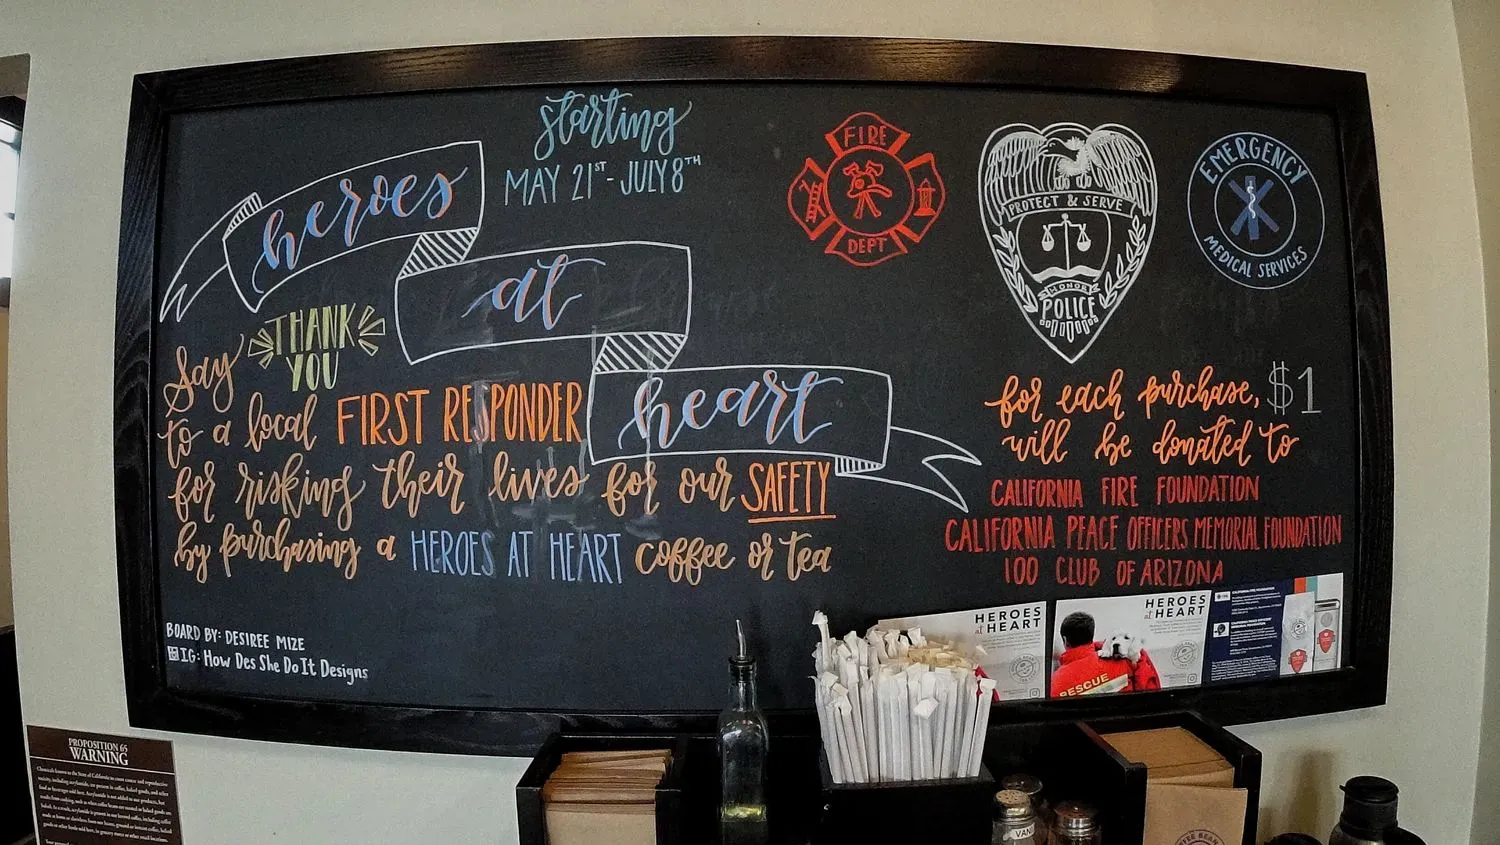 starting
MAY 21ST - JULY 8TH
heroes
at
heart
Say THANK YOU
to a local FIRST RESPONDER
for risking their lives for our SAFETY
by purchasing a HEROES AT HEART coffee or tea
BOARD BY: DESIREE MIZE
IG: How Des She Do It Designs
FIRE
DEPT
PROTECT & SERVE
HONOR
POLICE
EMERGENCY
MEDICAL SERVICES
for each purchase, $1
will be donated to
CALIFORNIA FIRE FOUNDATION
CALIFORNIA PEACE OFFICERS MEMORIAL FOUNDATION
100 CLUB OF ARIZONA
HEROES
at HEART
HEROES
at HEART
RESCUE
CALIFORNIA FIRE FOUNDATION
PROPOSITION 65
WARNING